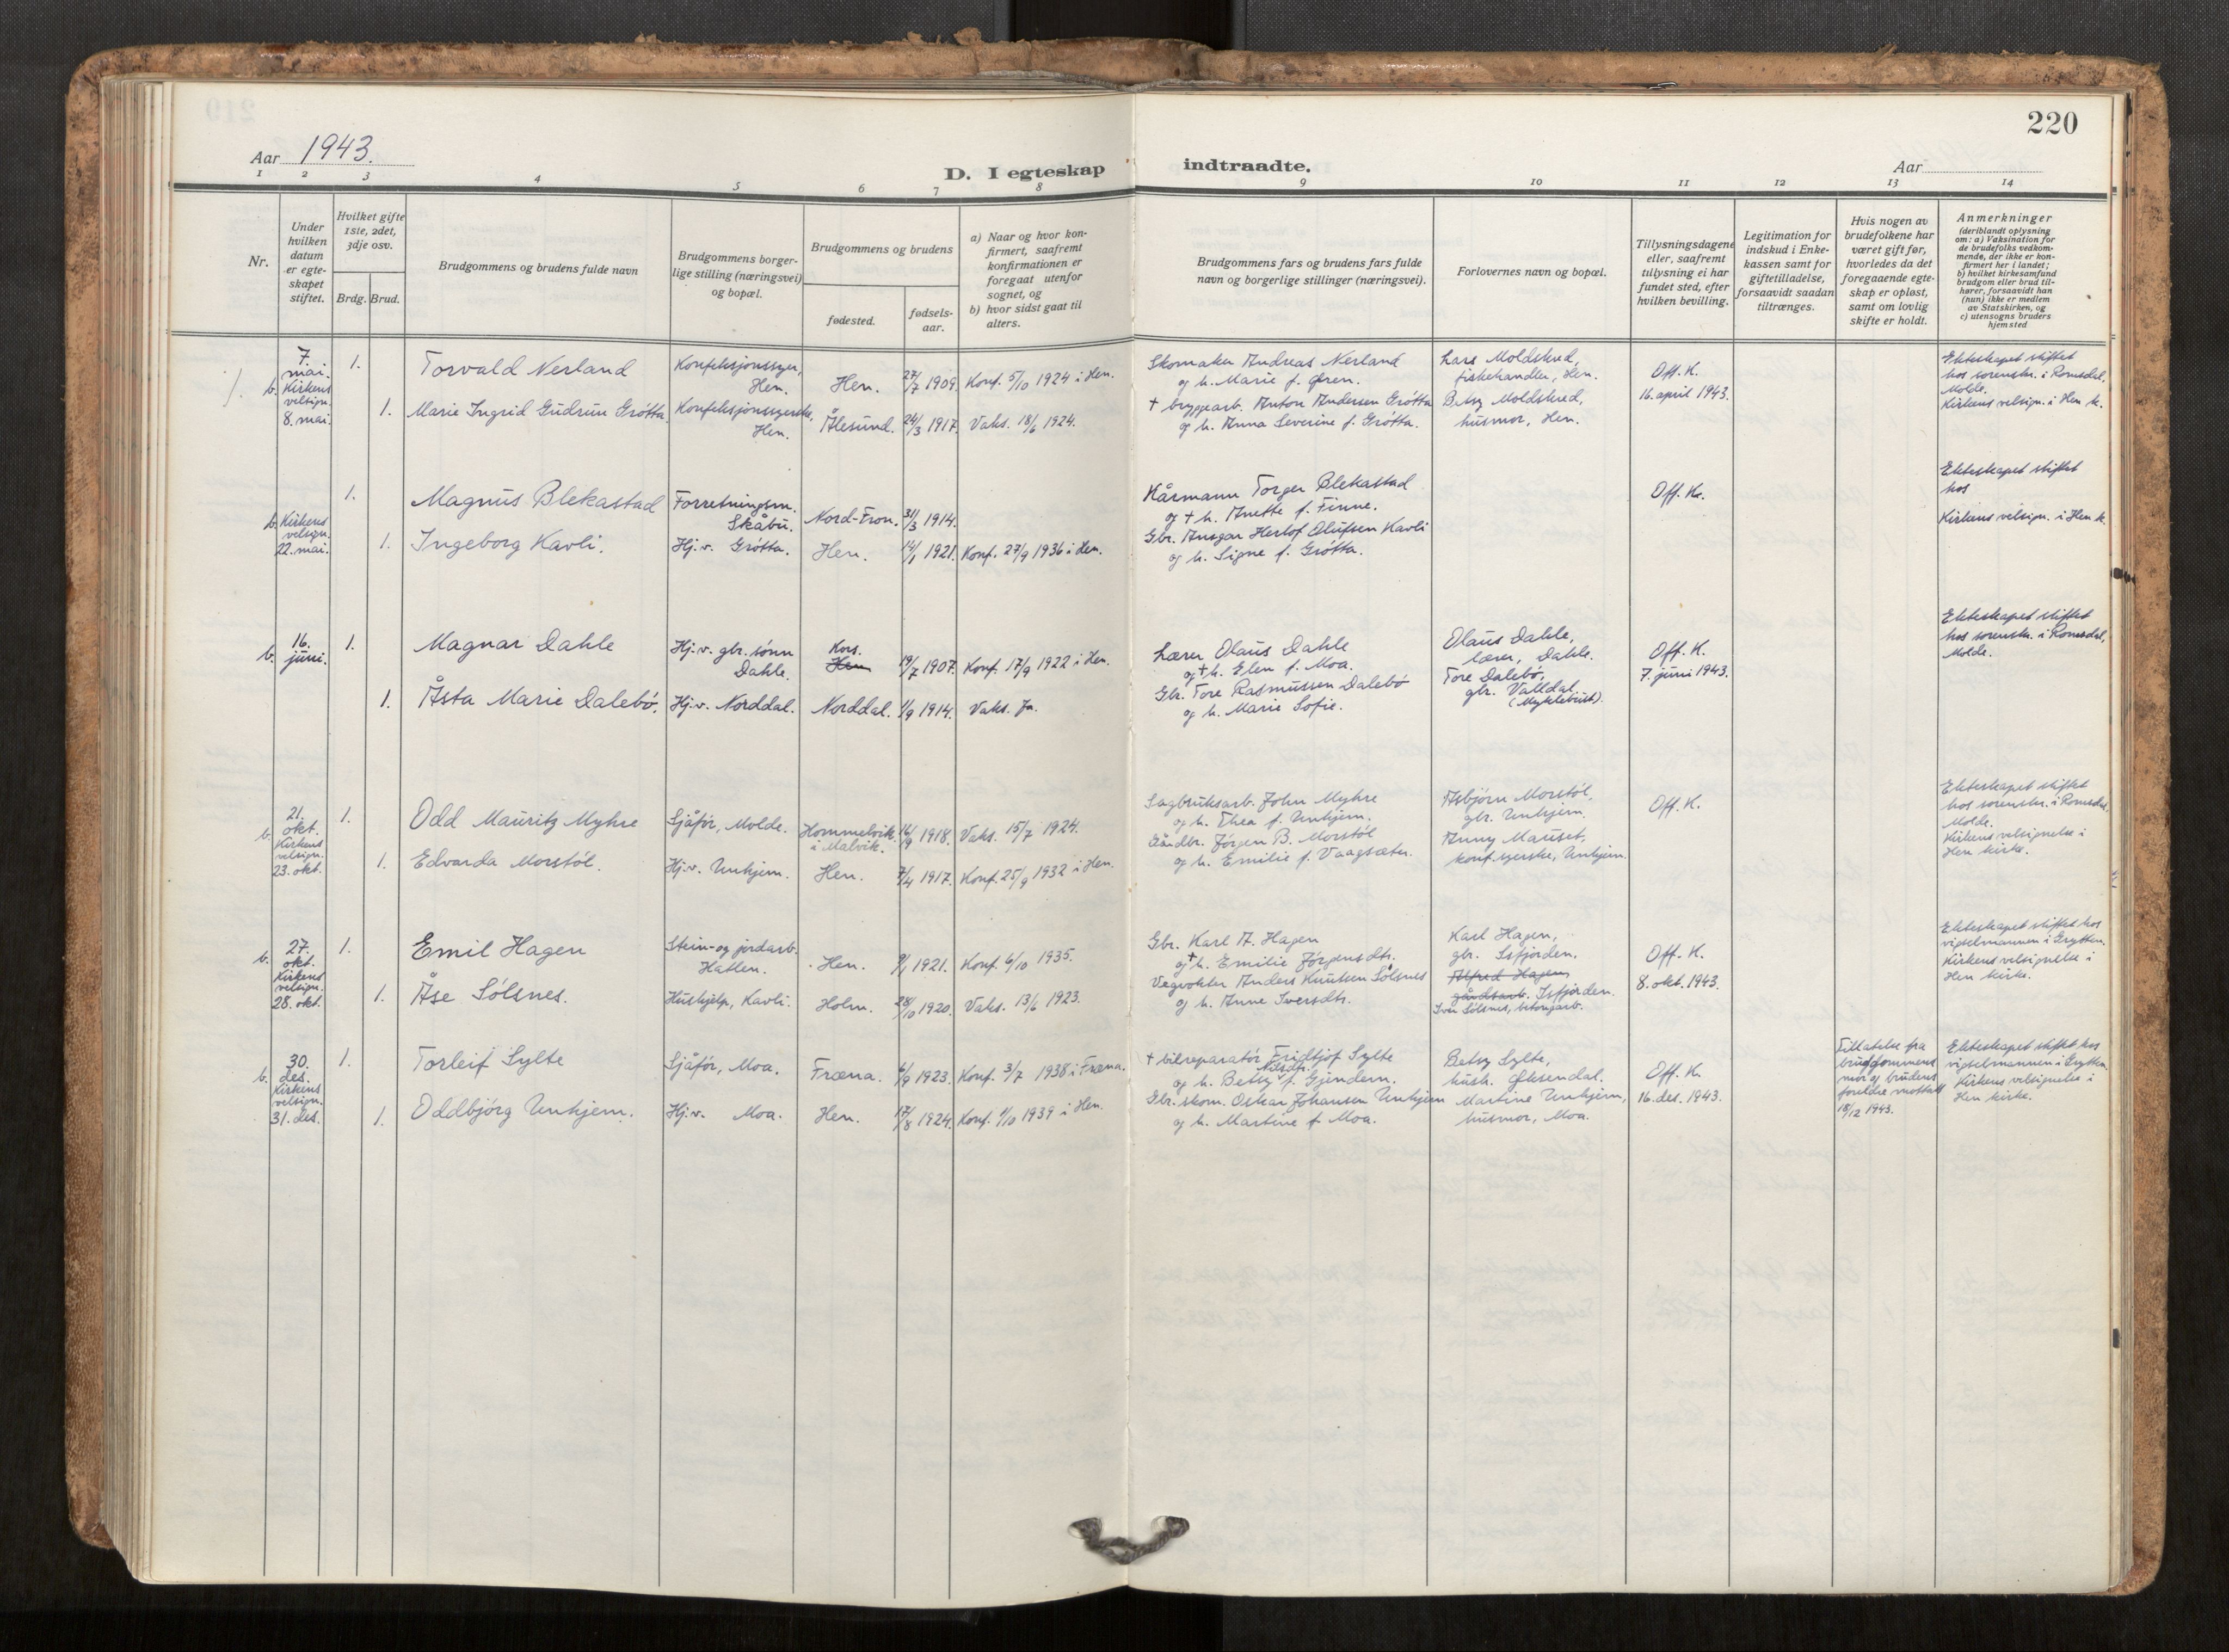 220
Aar 1943.
D. I egteskap indtraadte.
Aar
1 2 3 4 5 6 7 8 9 10 11 12 13 14
Nr.
Under
hvilken
datum
er egte-
skapet
stiftet.
Hvilket gifte
1ste, 2det,
3dje osv.
Brdg. Brud.
Brudgommens og brudens fulde navn
Brudgommens borger-
lige stilling (næringsvei)
og bopæl.
Brudgommens og brudens
fødested.
fødsels-
aar.
a) Naar og hvor kon-
firmert, saafremt
konfirmationen er
foregaat utenfor
sognet, og
b) hvor sidst gaat til
alters.
Brudgommens fars og brudens fars fulde
navn og borgerlige stillinger (næringsvei).
Forlovernes navn og bopæl.
Tillysningsdagene
eller, saafremt
tillysning ei har
fundet sted, efter
hvilken bevilling.
Legitimation for
indskud i Enke-
kassen samt for
giftetilladelse,
forsaavidt saadan
tiltrænges.
Hvis nogen av
brudefolkene har
været gift før,
hvorledes da det
foregaaende egte-
skap er opløst,
samt om lovlig
skifte er holdt.
Anmerkninger
(deriblandt oplysning
om: a) Vaksination for
de brudefolks vedkom-
mende, der ikke er kon-
firmert her i landet;
b) hvilket kirkesamfund
brudgom eller brud til-
hører, forsaavidt han
(hun) ikke er medlem
av Statskirken, og
c) utensogns bruders
hjemsted
7.
mai.
b. Kirkens
velsign.
8. mai.
1.
Torvald Nerland
Konfeksjonssyer,
Hen.
Hen.
27/7 1909.
Konf. 5/10 1924 i Hen.
Skomaker Andreas Nerland
og h. Marie f. Øren.
Lars Moldskred,
fiskehandler, Hen.
Off. K.
16. april 1943.
Ekteskapet stiftet
hos sorenskr. i Romsdal,
Molde.
Kirkens velsign. i Hen k.
1.
Marie Ingrid Gudrun Grótta.
Konfeksjonssyerske,
Hen.
Ålesund.
24/3 1917.
Vaks. 18/6 1924.
† bryggearb. Anton Andersen Grótta
og h. Anna Severine f. Grótta.
Betsy Moldskred,
husmor, Hen.
b. Kirkens
velsign.
22. mai.
1.
Magnus Blekastad
Forretningsm.
Skåbu.
Nord-Fron.
31/3 1914.
Kårmann Torger Blekastad
og † h. Anette f. Finne.
Off. K.
Ekteskapet stiftet
hos
Kirkens velsign. i Hen k.
1.
Ingeborg Kavli.
Hj.v. Grótta.
Hen.
14/1 1921.
Konf. 27/9 1936 i Hen.
Gbr. Ansgar Herlof Olufsen Kavli
og h. Signe f. Grótta.
16.
b. juni.
1.
Magnar Dahle
Hj.v. gbr. sønn
Dahle.
Kors.
Hen
19/7 1907.
Konf. 17/9 1922 i Hen.
Lærer Olaus Dahle
og † h. Elen f. Moa.
Olaus Dahle,
lærer, Dahle.
Off. K.
7. juni 1943.
Ekteskapet stiftet
hos sorenskr. i Romsdal,
Molde.
1.
Åsta Marie Dalebó.
Hj.v. Norddal.
Norddal.
1/9 1914.
Vaks. Ja.
Gbr. Tore Rasmussen Dalebó
og h. Marie Sofie.
Tore Dalebó,
gbr. Valldal.
(Myklebust).
21.
b. okt.
Kirkens
velsign.
23. okt.
1.
Odd Mauritz Myhre
Sjåfór, Molde.
Hommelvik
i Malvik.
16/9 1918.
Vaks. 15/7 1924.
Sagbruksarb. John Myhre
og h. Thea f. Unhjem.
Asbjørn Morstól,
gbr. Unhjem.
Off. K.
Ekteskapet stiftet
hos sorenskr. i Romsdal,
Molde.
Kirkens velsignelse i
Hen kirke.
1.
Edvarda Morstól.
Hj.v. Unhjem.
Hen.
7/4 1917.
Konf. 25/9 1932 i Hen.
Gårdbr. Jórgen B. Morstól
og h. Emilie f. Vaagsæter.
Anny Mauset,
konf.syerske, Unhjem.
27.
b. okt.
Kirkens
velsign.
28. okt.
1.
Emil Hagen
Stein- og jordarb.
Hatlen.
Hen.
9/1 1921.
Konf. 6/10 1935.
Gbr. Karl A. Hagen
og † h. Emilie Jørgensdtr.
Karl Hagen,
gbr. Isfjorden.
Off. K.
8. okt. 1943.
Ekteskapet stiftet hos
vigselmannen i Grytten.
Kirkens velsignelse i
Hen kirke.
1.
Åse Sólsnes.
Hushjelp, Kavli.
Holm.
28/10 1920.
Vaks. 13/6 1923.
Vegvokter Anders Knutsen Sólsnes
og h. Anne Iversdtr.
Alfred Hagen
gårdsarb. Isfjorden.
Iver Sólsnes, betongarb.
30.
b. des.
Kirkens
velsign.
31. des.
1.
Torleif Sylte
Sjåfór, Moa.
Fræna.
6/9 1923.
Konf. 3/7 1938 i Fræna.
† bilreparatór Fridtjof Sylte
og h. Betsy Nilsdtr. f. Gjendem.
Betsy Sylte,
hush. Øksendal.
Off. K.
16. des. 1943.
Tillatelse fra
brudgommens
mor og brudens
foreldre mottatt
18/12 1943.
Ekteskapet stiftet hos
vigselmannen i Grytten.
Kirkens velsignelse i
Hen kirke.
1.
Oddbjórg Unhjem.
Hj.v. Moa.
Hen.
17/8 1924.
Konf. 1/10 1939 i Hen.
Gbr. skom. Oskar Johansen Unhjem
og h. Martine f. Moa.
Martine Unhjem,
husmor, Moa.